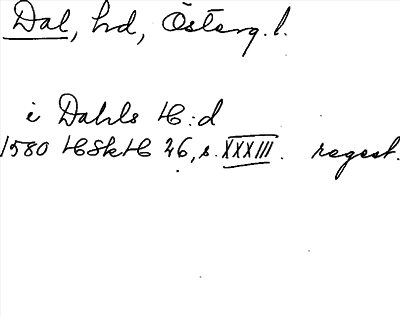 Dal, hd, Österg. l.
i Dahls H:d
1580 HSkH 36, s. XXXIII. regest.